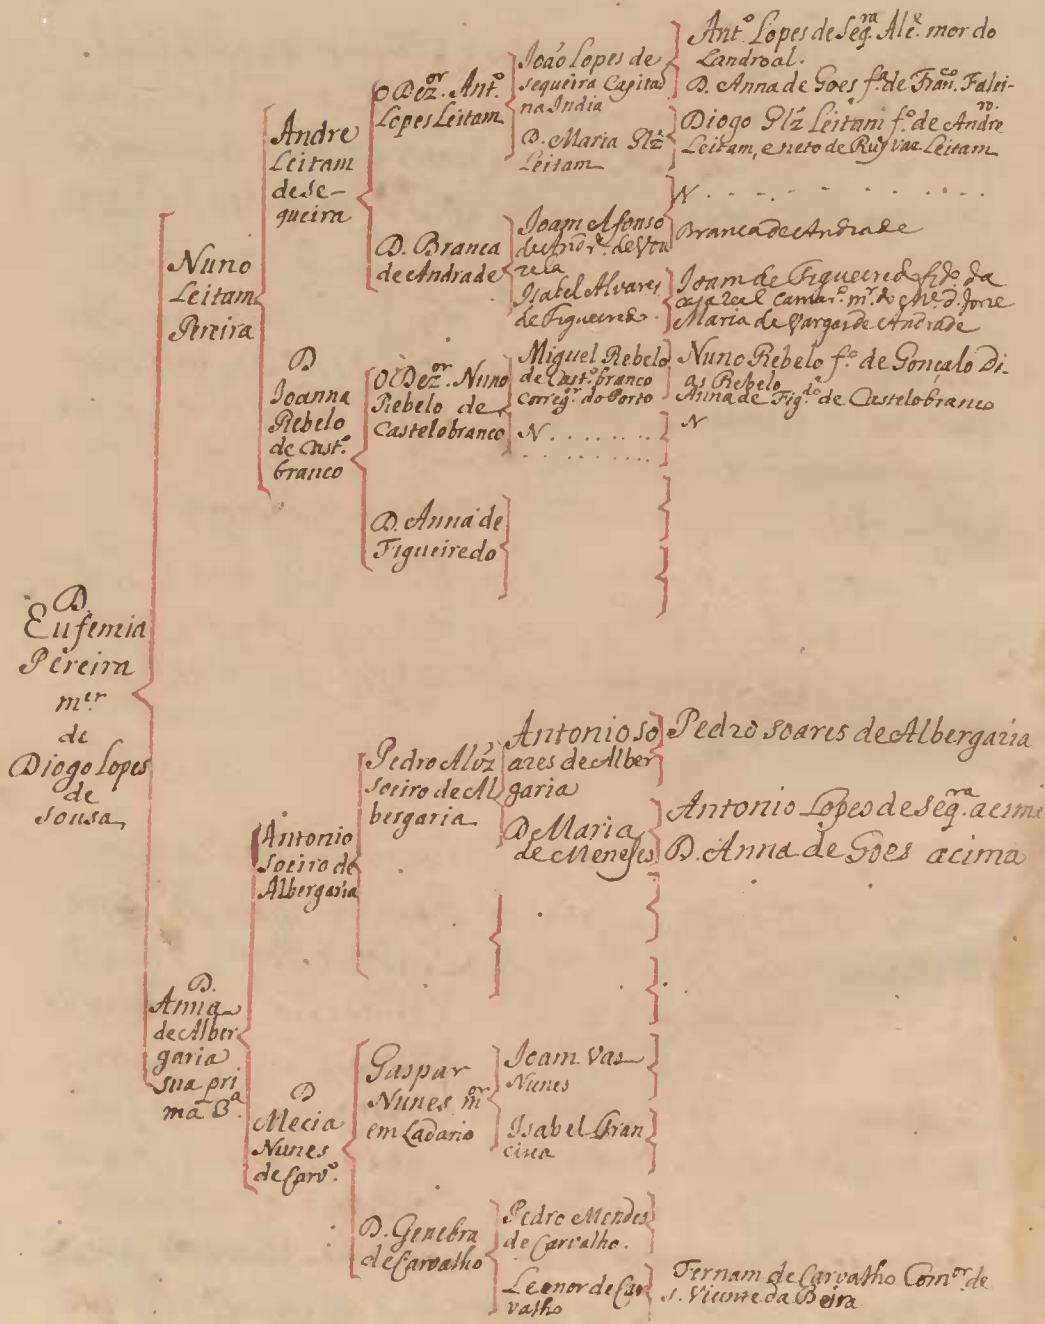 D.
Eufemia
Pereira
m.er
de
Diogo Lopes
de
Sousa
Nuno
Leitam
Pereira
D.
Anna
de Alber
garia
sua pri
ma
Andre
Leitam
de Se-
queira
D
Joanna
Rebelo
de Cast.º
branco
Antonio
Soeiro de
Albergaria
D
Mecia
Nunes
de Carv.º
O Dez.or Ant.º
Lopes Leitam
D. Branca
de Andrade
O Dez.or Nuno
Rebelo de
Castelobranco
D. Anna de
Figueiredo
Pedro Alvz
Soeiro de Al
bergaria
Gaspar
Nunes m.or
em Ladario
D. Genebra
de Carvalho
João Lopes de
sequeira Capitaõ
na India
D. Maria Glz
Leitam
Joam Afonso
de Andr.e de Vou
zela
Isabel Alvares
de Figueiredo
Miguel Rebelo
de Cast.º branco
correg.r do Porto
N . . . . . . . .
. . . . . . . . .
Antonio So
ares de Alber
garia
D. Maria
de Meneses
Joam Vas
Nunes
Isabel Fran
cisca
Pedro Mendes
de Carvalho.
Leonor de Car
valho
Ant.º Lopes de Seq.ra Alc.e mor do
Landroal.
D. Anna de Goes f.ª de Fran.co Falei-
ro.
Diogo Glz Leitam f.º de Andre
Leitam, e neto de Ruy vaz Leitam
N . . . . . . . . . . . .
Branca de Andrade
Joam de Figueiredo fid.º da
casa real camar.º m.r do M.e D. Jorge
Maria de Vargas de Andrade
Nuno Rebelo f.º de Gonçalo Di-
as Rebelo
Anna de Fig.do de Castelobranco
N
Pedro Soares de Albergaria
Antonio Lopes de Seq.ra acima
D. Anna de Goes acima
Fernam de Carvalho Com.or de
S. Vicente da Beira